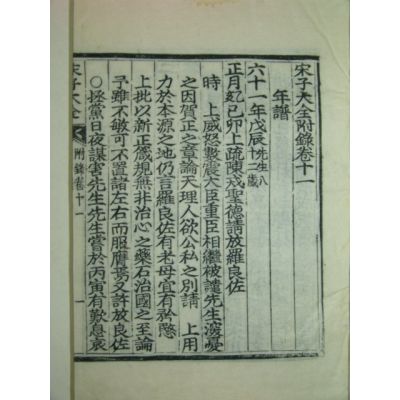 宋子大全附錄卷十一
年譜
六十一年戊辰先生八十二歲
正月紀己卯上疏陳戎聖德請放羅良佐
時 上威怒數震大臣重臣相繼被譴先生深憂
之因賀正之章論天理人欲公私之別請 上用
力於本源之地仍言羅良佐有老母宜有矜愍
上批以新正歲規無非治心之藥石治國之至論
予雖不敏可不置諸左右而服膺焉又許放良佐
○拯黨日夜謀害先生先生嘗於丙寅有歎息哀
宋子大全 附錄卷十一 一